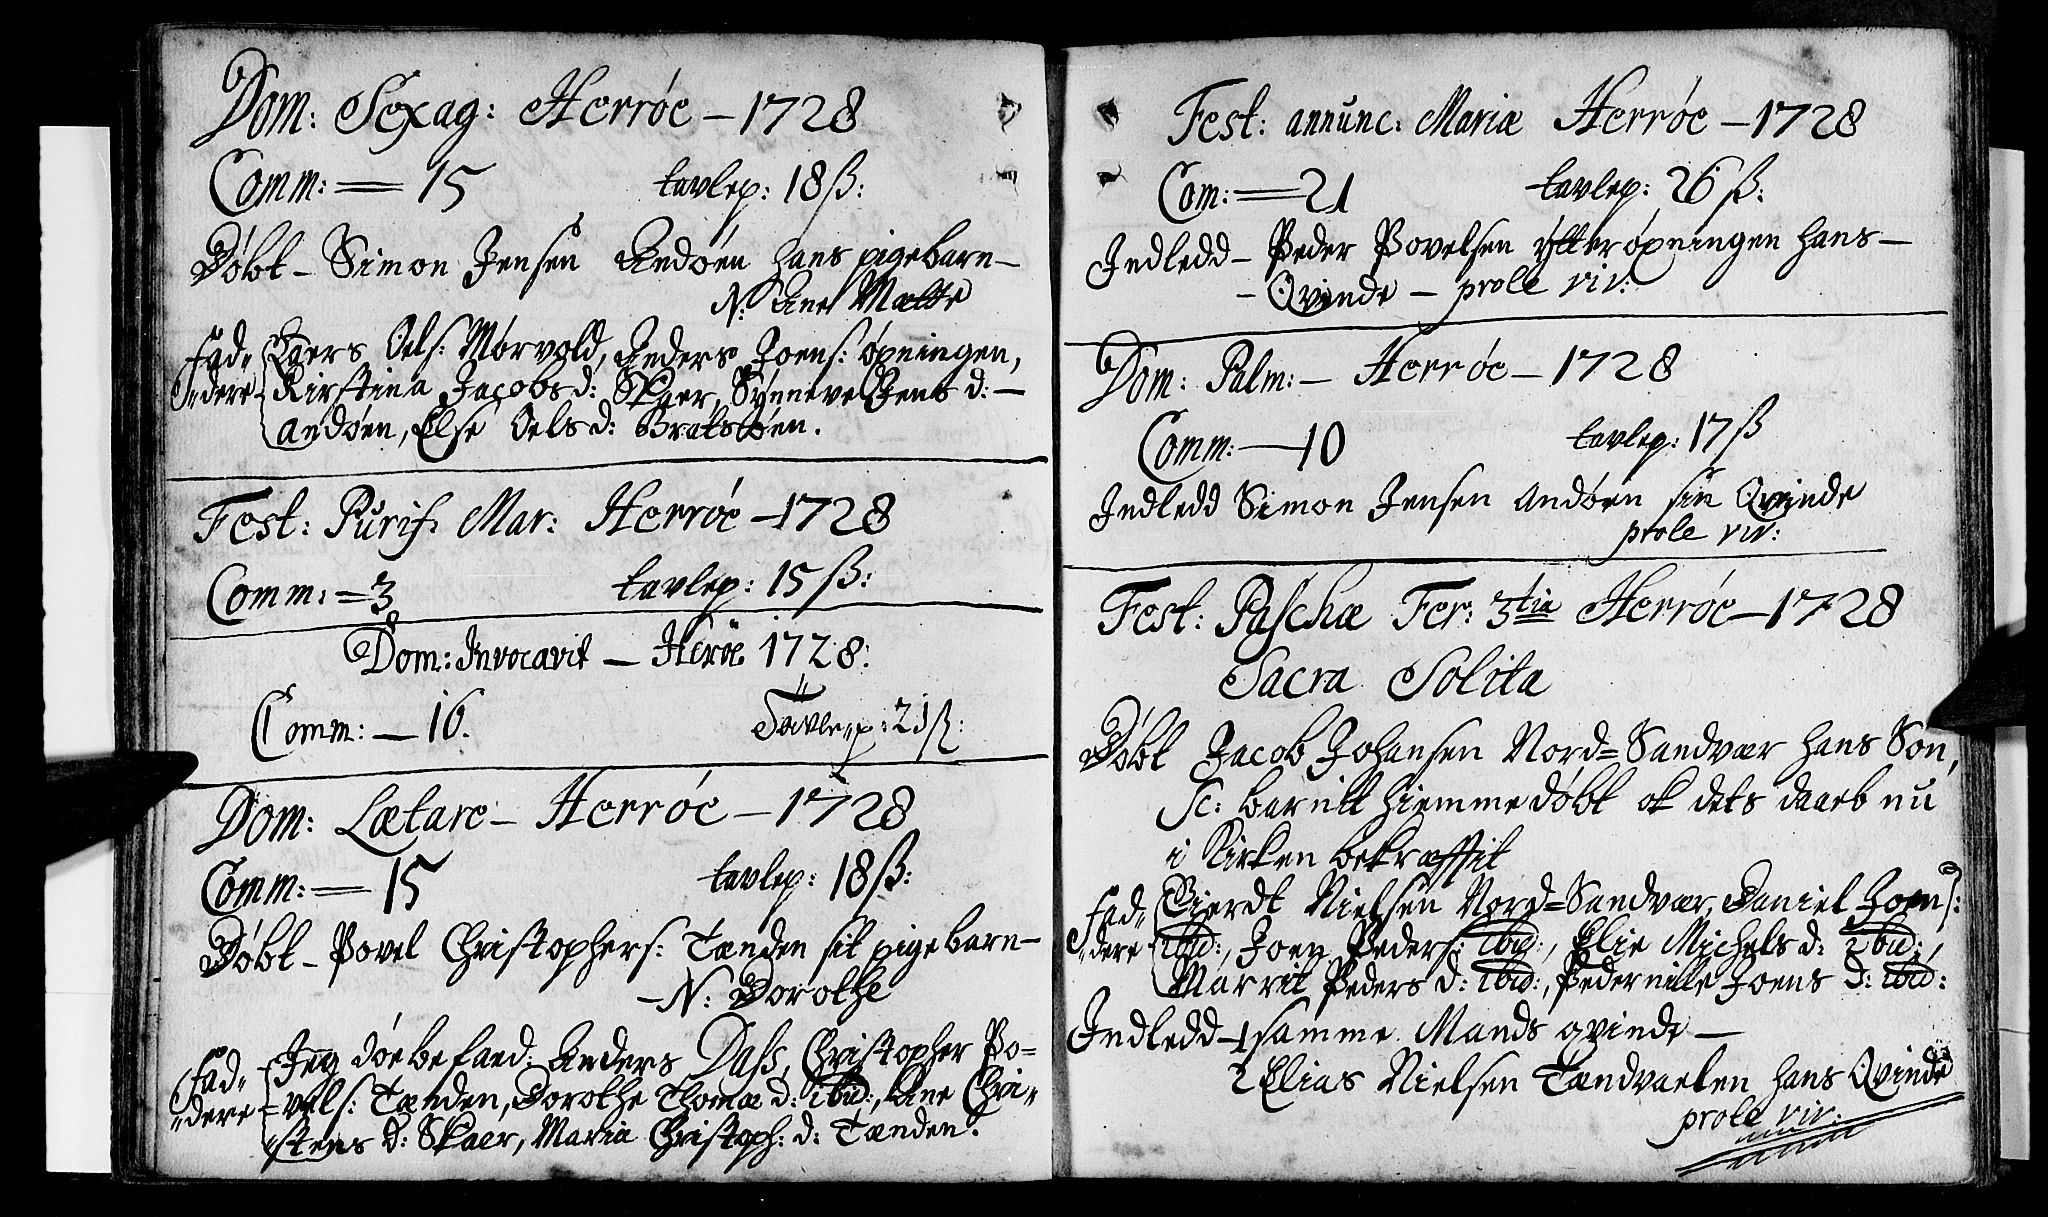 Dom: Sexag: Herrøe – 1728
Comm: = 15 tavlep: 18 ß:
Døbt – Simon Jensen Andøen hans pigebarn –
N: Ane Mætte
Fad„ Laers Oels: Morvold, Anders Joens: øpningen,
„dere Kirstina Jacobs d: Skaer, Synnevel Jens d: –
Andøen, Else Oels d: Bratstøen.
Fest: Purif: Mar: Herrøe – 1728
Comm: = 3 tavlep: 15 ß:
Dom: Invocavit – Herøe 1728:
Comm: – 16. Tavle„p: 21 ß:
Dom: Lætare – Herrøe – 1728
Comm: = 15 tavlep: 18 ß:
Døbt – Povel Christophers: Tænden sit pigebarn –
– N: Dorothe
Fad„ Jeg døbefard: Anders Dass, Christopher Po=
„dere vels: Tænden, Dorothe Thomæ d: ibid:, Ane Chri„
stens d: Skaer, Maria Christoph: d: Tænden.
Fest: annunc: Mariæ Herrøe – 1728
Com: = 21 tavlep: 26 ß:
Indledd – Peder Povelsen ytterøpningen hans –
– Qvinde – prole viv:
Dom: Palm: – Herrøe – 1728
Comm: – 10 tavlep: 17 ß
Indledd Simon Jensen Andøen sin Qvinde
prole viv:
Fest: Paschæ Fer: 3tia Herrøe – 1728
Sacra Solita
Døbt Jacob Johansen Nord=Sandvær hans Søn,
Sc: barnit hiemmedøbt ok dets daab nu
i Kirken bekræfftit
Fad„ Gierdt Nielsen Nord=Sandvær, Daniel Joens:
„dere ibid:, Joen Peders: ibid:, Elie Michels d: ibid:,
Marrit Peders d: ibid:, Pedernille Joens d: ibid:
Indledd – 1 samme Mands qvinde –
2 Elias Nielsen Tændvaelen hans Qvinde
prole viv: